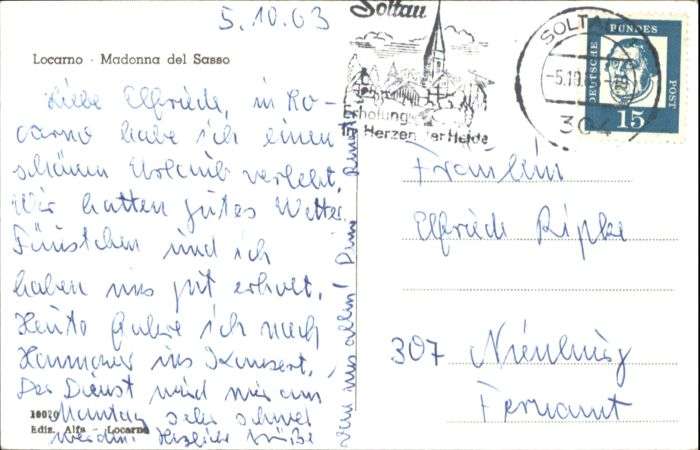 5.10.63
Locarno - Madonna del Sasso
Liebe Elfriede, in Lo-
carno habe ich einen
schönen Urlaub verlebt.
Wir hatten gutes Wetter.
und ich
haben uns gut erholt.
Heute fahre ich nach
Hannover ins Konzert.
Der Dienst wird mir am
Montag sehr schwer
werden. Herzliche Grüße
von uns allen! Deine
10070
Ediz. Alfa - Locarno
Soltau
Erholung
im Herzen der Heide
SOLTAU
-5.10.6
304
DEUTSCHE BUNDESPOST
15
Fräulein
Elfriede Ripke
307 Nienburg
Fernamt